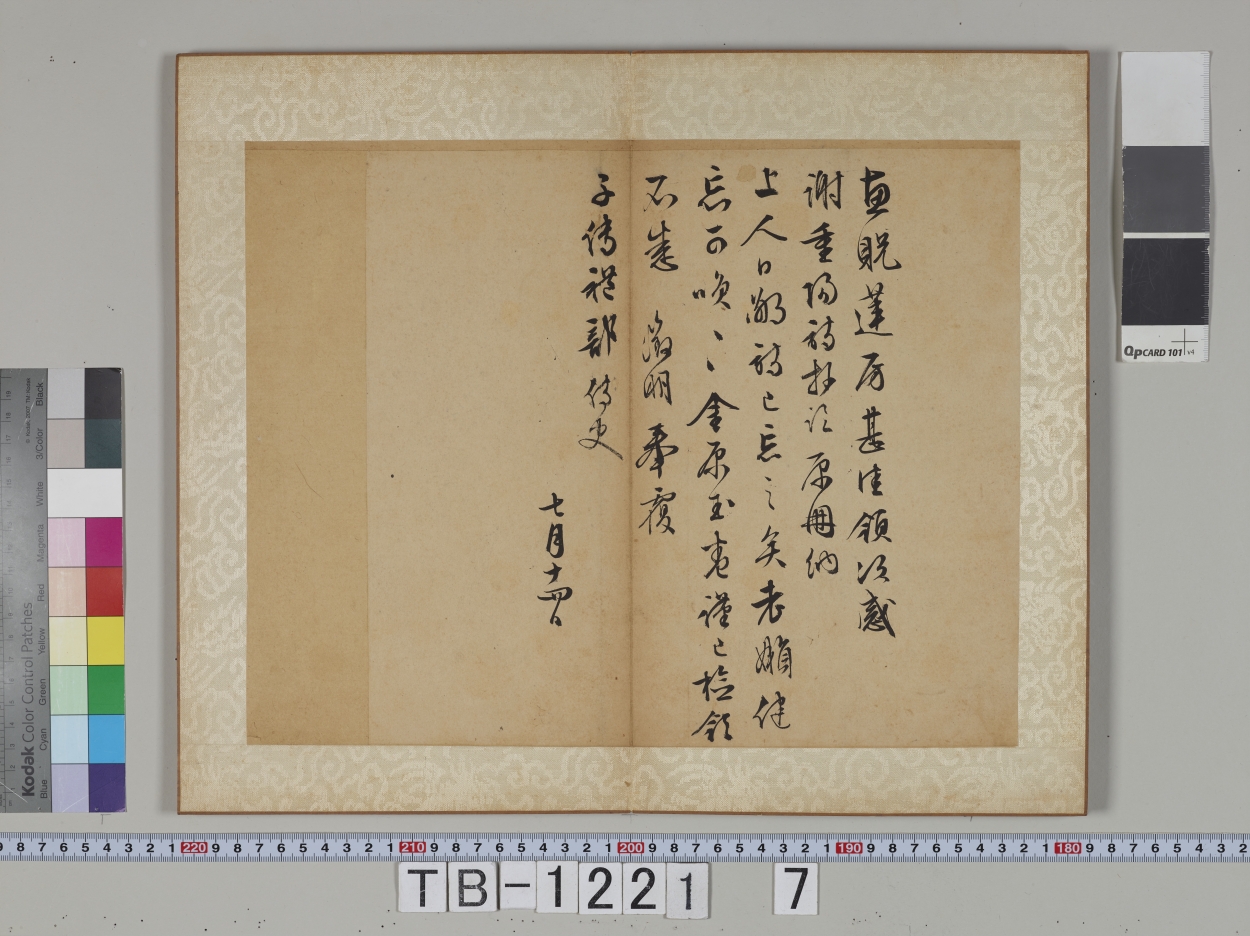 惠貺蓮房甚佳領次感
謝重陽詩抄訖原冊納
上人日鄙詩已忘之矣老嬾健
忘可唉〻金原玉
謹已檢領
不悉 徵明奉覆
子傳禮部侍史
七月十四日
QpCARD 101 v4
Kodak Color Control Patches
Blue Cyan Green Yellow Red Magenta White 3/Color Black
9 8 7 6 5 4 3 2 1 220 9 8 7 6 5 4 3 2 1 210 9 8 7 6 5 4 3 2 1 200 9 8 7 6 5 4 3 2 1 190 9 8 7 6 5 4 3 2 1 180 9 8 7 6 5 4 3 2
TB-1221 7